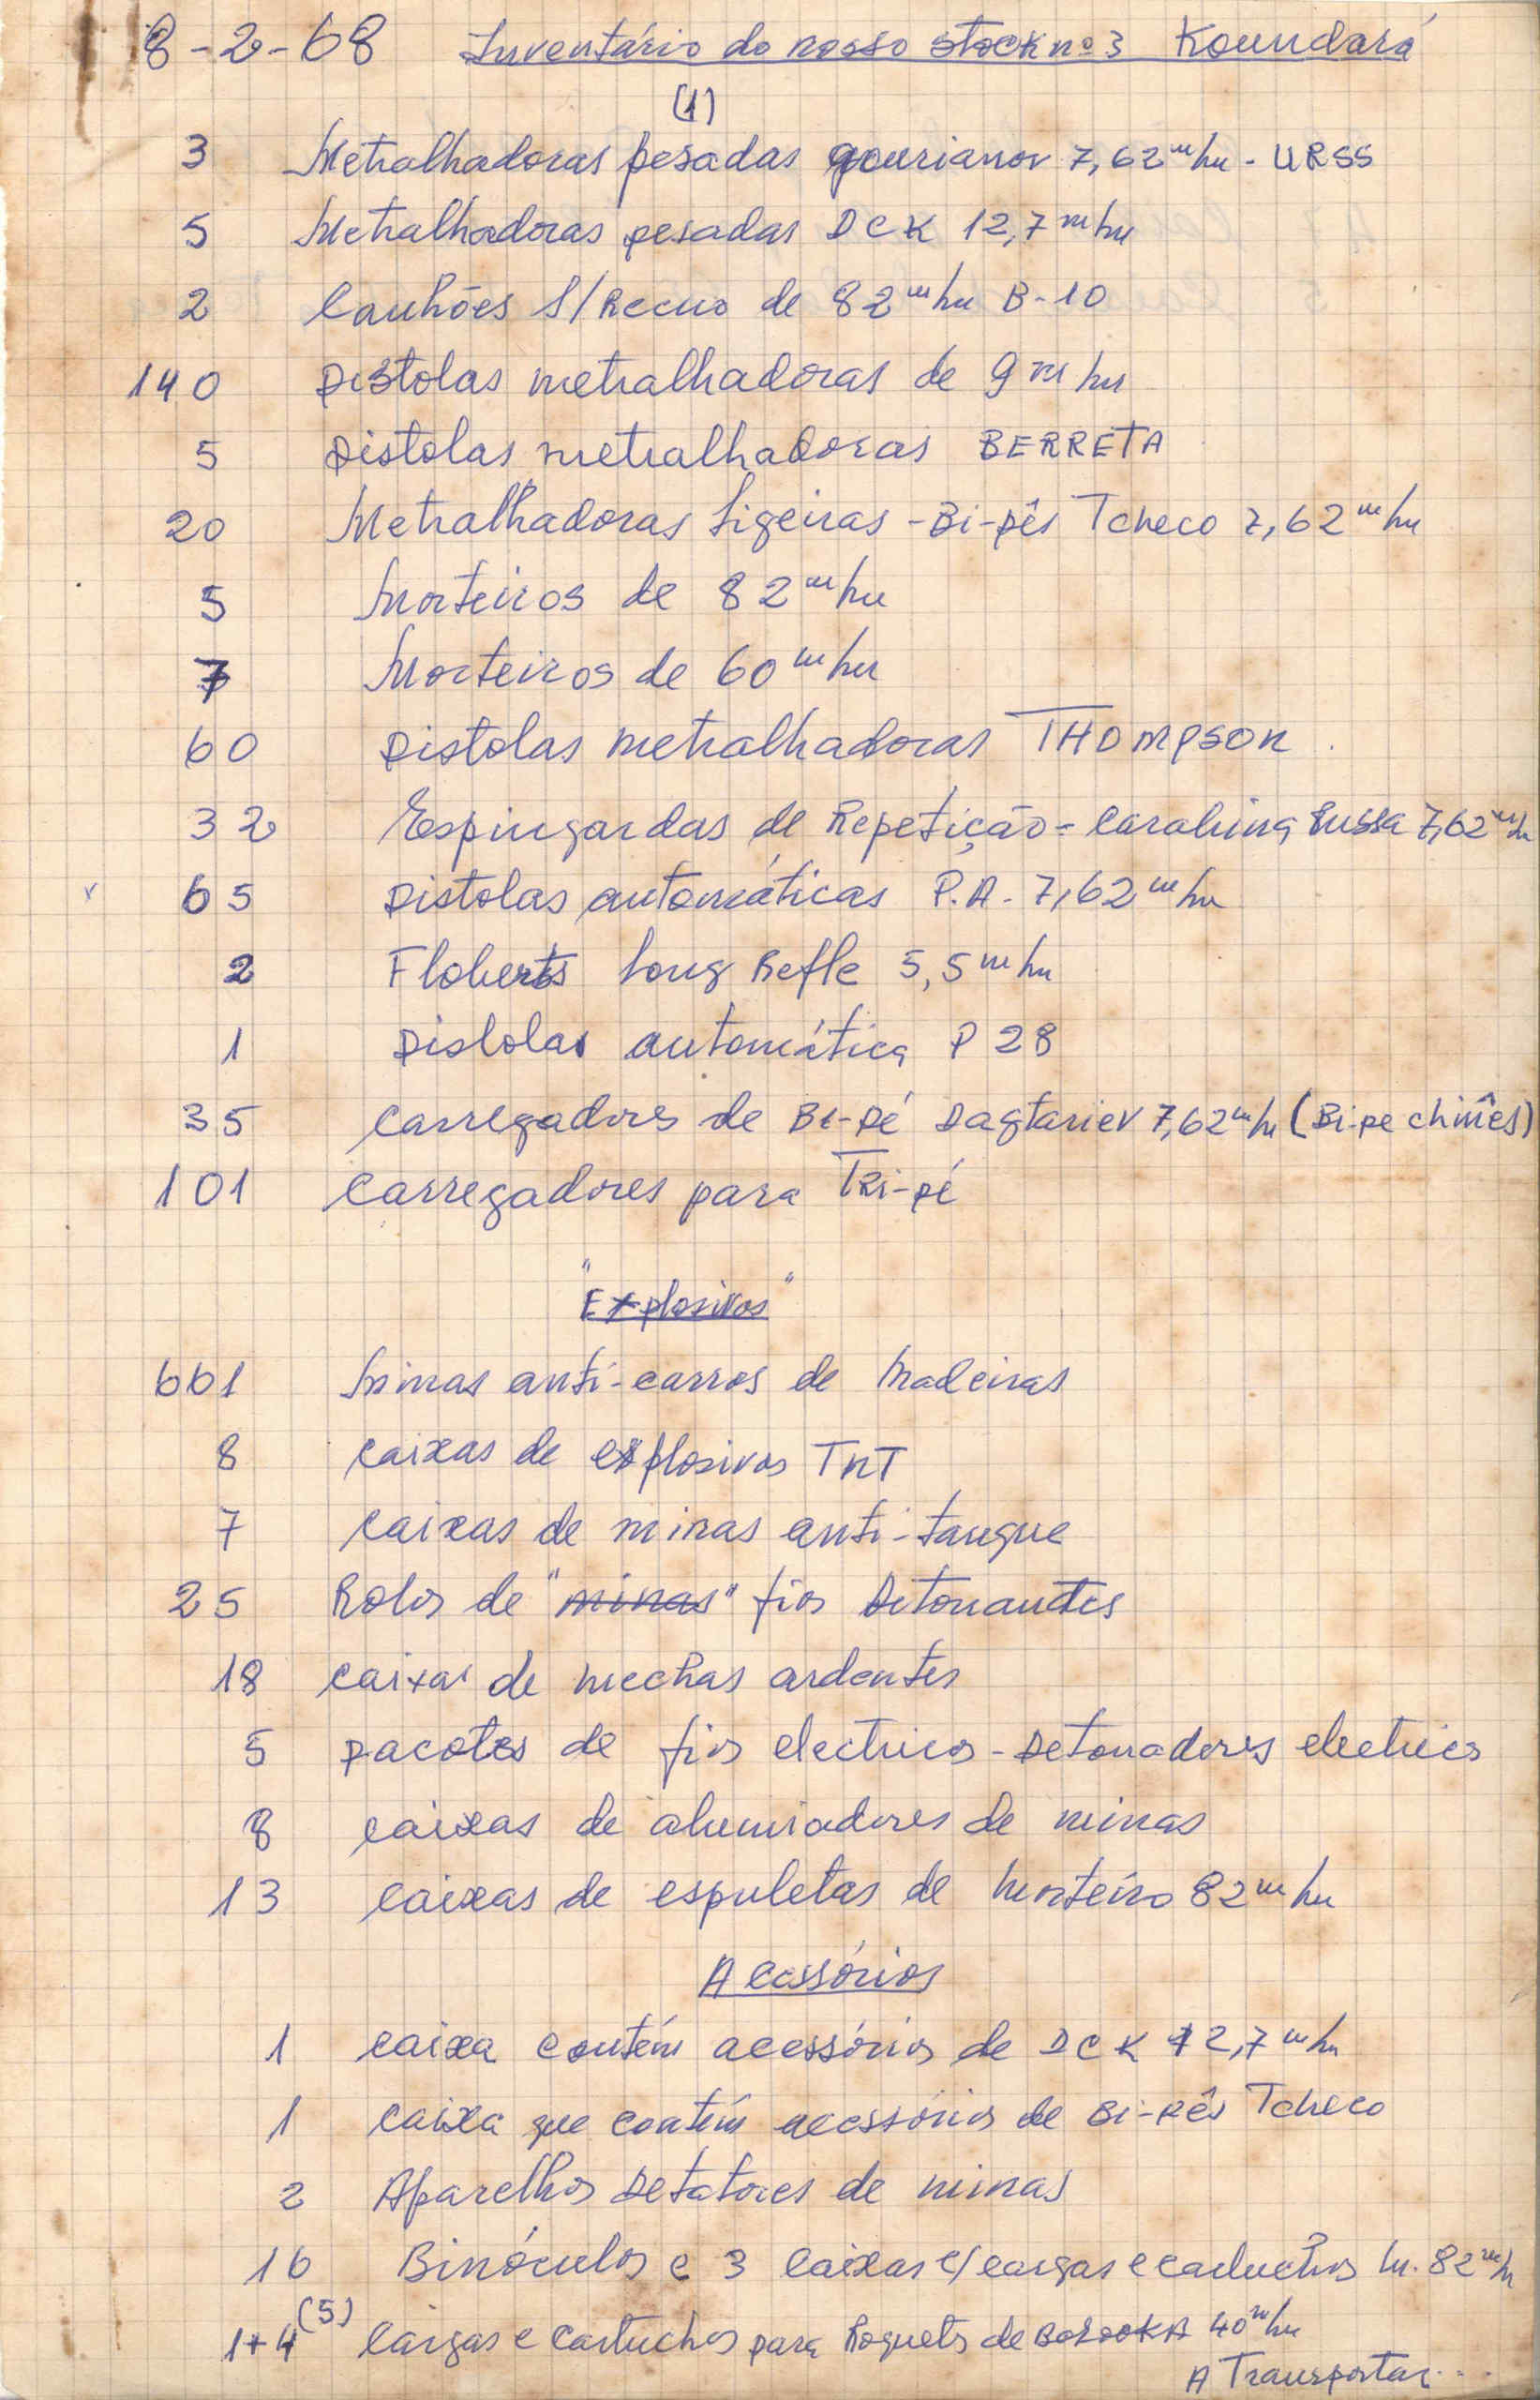 8-2-68 Inventário do nosso stock nº 3 Koundará
(1)
3 Metralhadoras pesadas gourianov 7,62 m/m - URSS
5 Metralhadoras pesadas DCK 12,7 m/m
2 Canhões S/Recuo de 82 m/m B-10
140 Pistolas metralhadoras de 9 m/m
5 Pistolas metralhadoras BERRETA
20 Metralhadoras Ligeiras - Bi-pês Tcheco 7,62 m/m
5 Morteiros de 82 m/m
7 Morteiros de 60 m/m
60 Pistolas metralhadoras THOMPSON.
32 Espingardas de Repetição = Carabina Russa 7,62 m/m
65 Pistolas automáticas P.A. 7,62 m/m
2 Floberts Long Refle 5,5 m/m
1 Pistolas automática P 28
35 Carregadores de Bi-pé Dagtariev 7,62 m/m (Bi-pe chinês)
101 Carregadores para Tri-pé
"Explosivos"
661 Minas anti-carros de Madeiras
8 Caixas de explosivos TNT
7 Caixas de minas anti-tanque
25 Rolos de "minas" fios Detonantes
18 Caixas de mechas ardentes
5 pacotes de fios electricos - Detonadores electricos
8 Caixas de alumiadores de minas
13 Caixas de espuletas de Morteiro 82 m/m
Acessórios
1 Caixa contém acessórios de DCK 12,7 m/m
1 Caixa que contém acessórios de Bi-pês Tcheco
2 Aparelhos Detatores de minas
16 Binóculos e 3 Caixas c/ cargas e cartuchos M. 82 m/m
1+4 (5) Cargas e Cartuchos para Roquets de BAZOOKA 40 m/m
A Transportar...